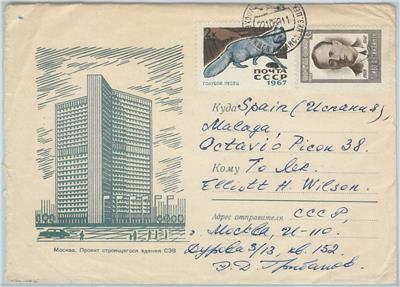 2к
ПОЧТА
СССР
1967
ГОЛУБОЙ ПЕСЕЦ
Куда Spain (Испания),
Malaga,
Octavio Picon 38.
Кому To Лек.
Elliott H. Wilson.
Адрес отправителя СССР,
г. Москва, 21-110.
3/13, кв. 152.
Э. Д.
Москва. Проект строящегося здания СЭВ